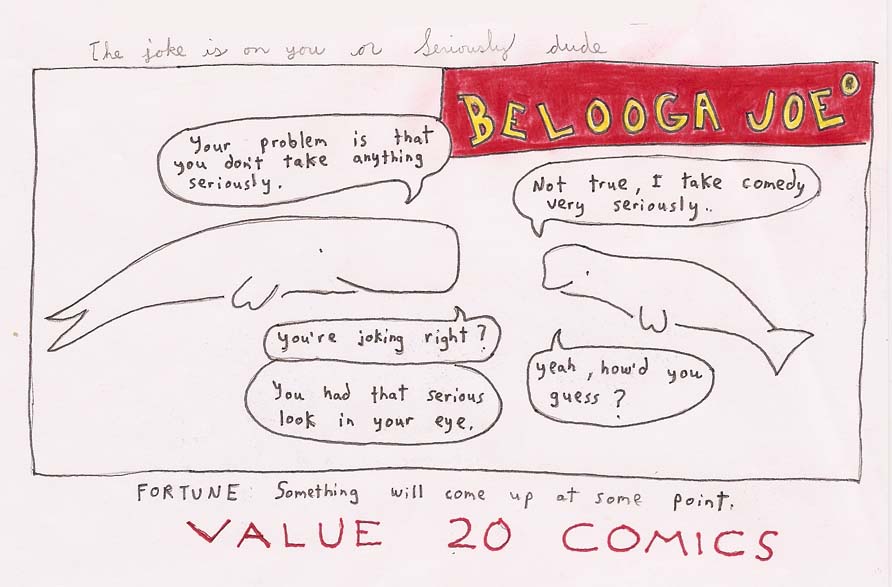 The joke is on you or Seriously dude
BELOOGA JOE
Your problem is that
you don't take anything
seriously.
Not true, I take comedy
very seriously..
you're joking right?
yeah, how'd you
guess?
You had that serious
look in your eye.
FORTUNE Something will come up at some point.
VALUE 20 COMICS